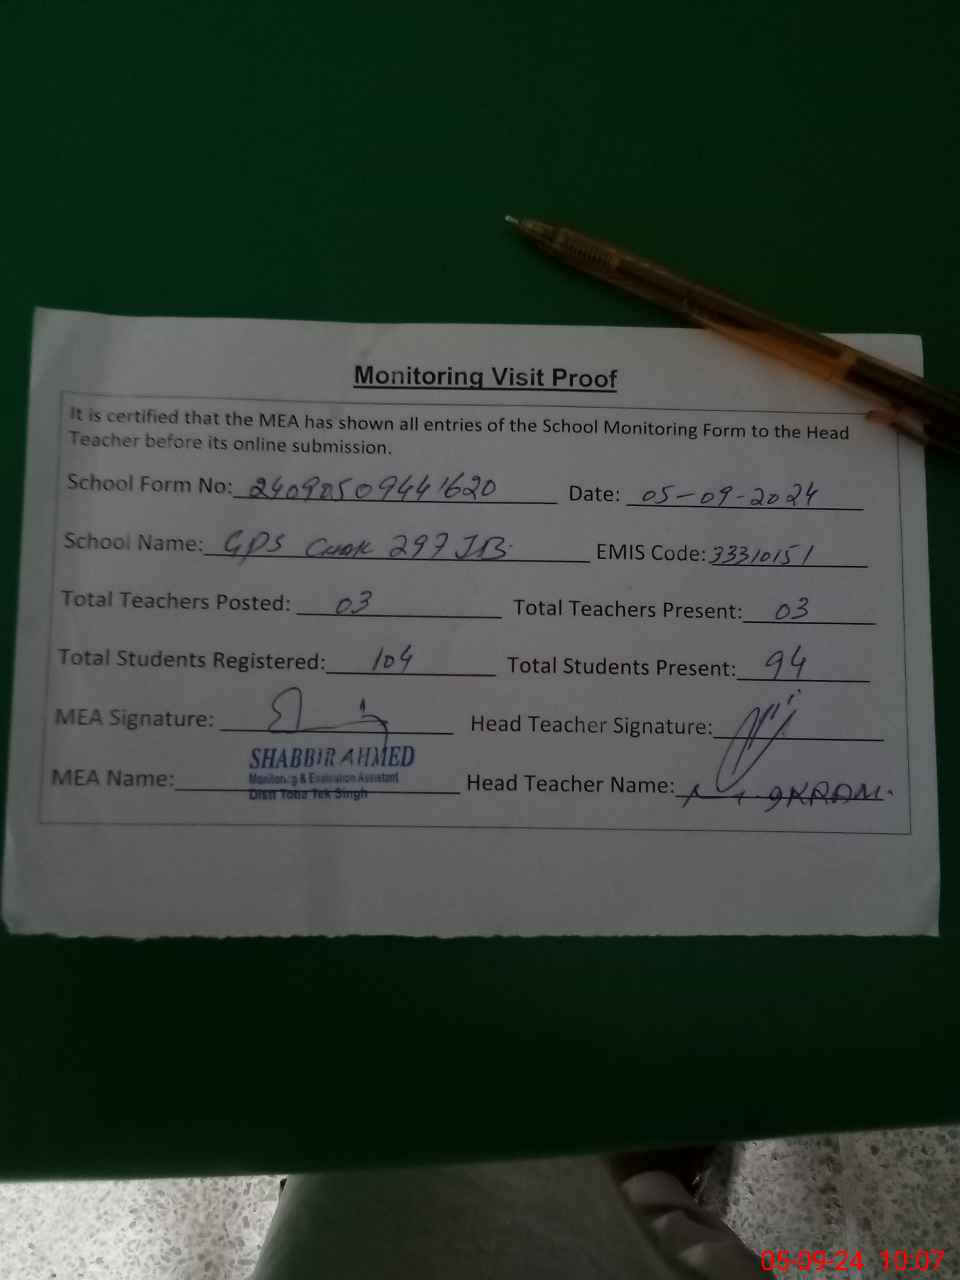 Monitoring Visit Proof
It is certified that the MEA has shown all entries of the School Monitoring Form to the Head
Teacher before its online submission.
School Form No: 24090509441620 Date: 05-09-2024
School Name: GPS Chak 297 JB. EMIS Code: 33310151
Total Teachers Posted: 03 Total Teachers Present: 03
Total Students Registered: 104 Total Students Present: 94
MEA Signature: Head Teacher Signature:
SHABBIR AHMED
Monitoring & Evaluation Assistant
Distt Toba Tek Singh
MEA Name: Head Teacher Name: IKRAM.
05-09-24 10:07